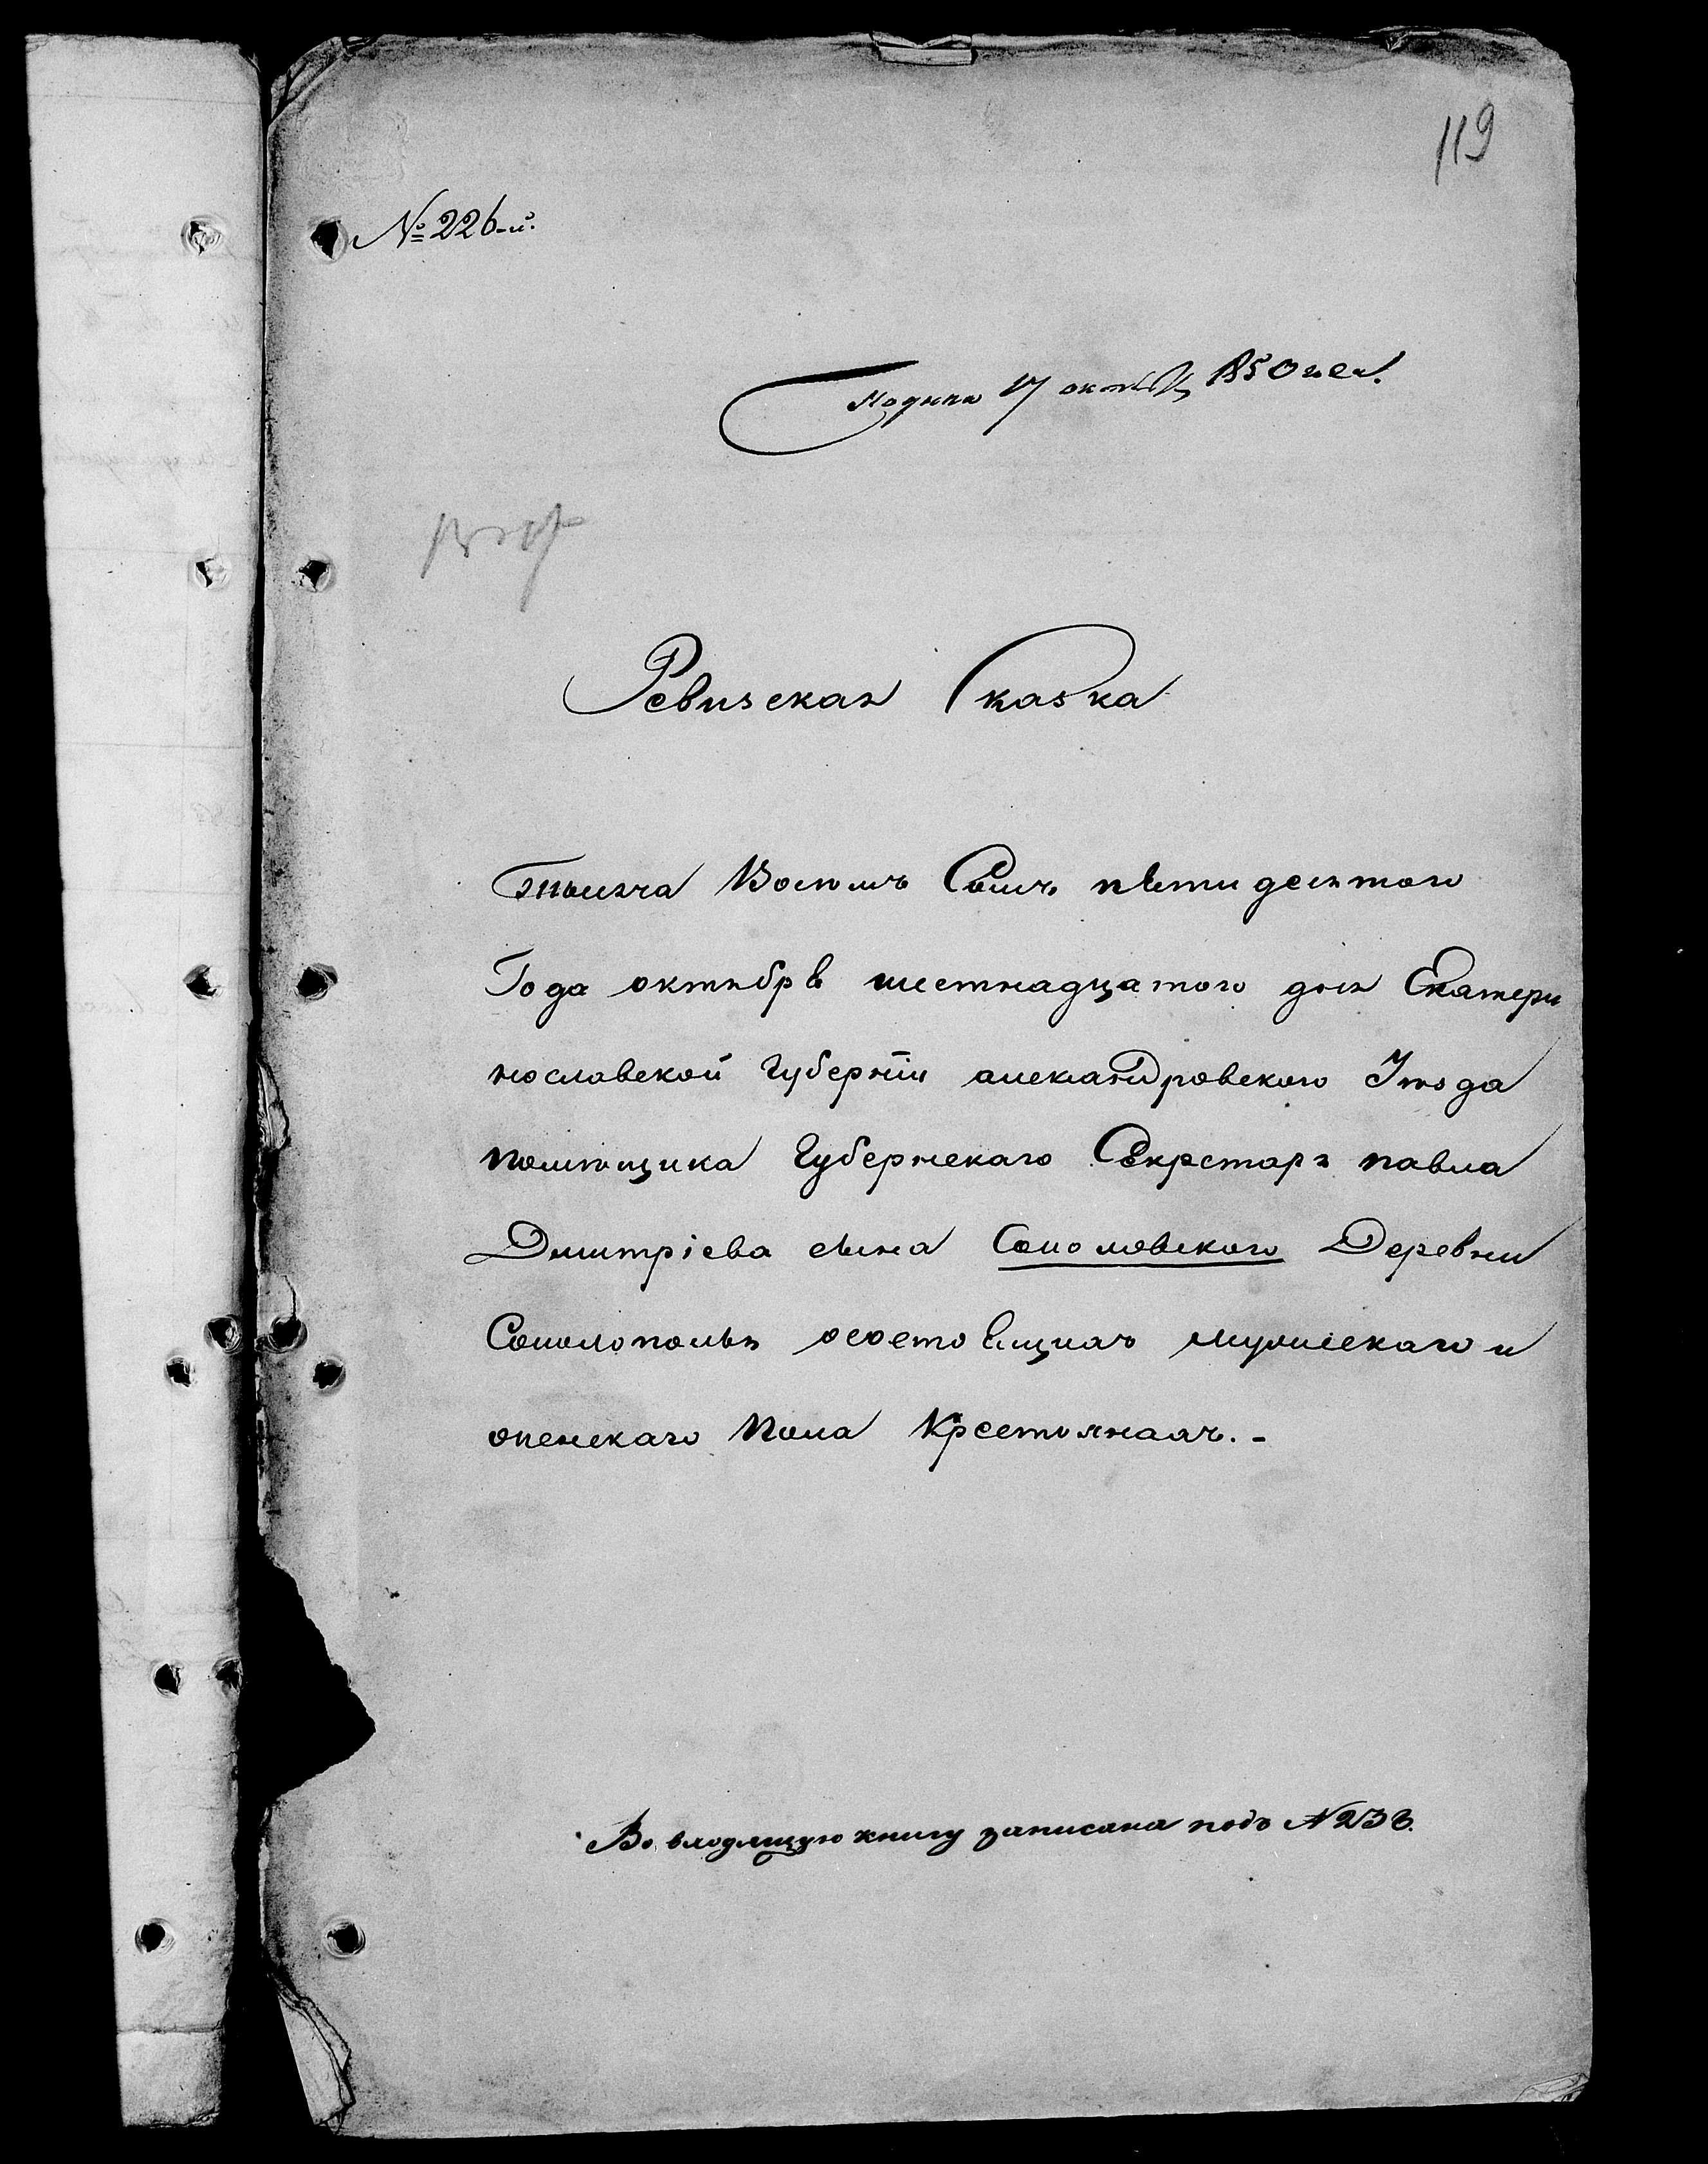 119
№ 226-й.
Подана 17 октяб. 1850 года.
Ревизская Сказка
Тысяча Восемь Сотъ пятидесятого
Года октября шестнадцатого дня Екатери
нославской губерніи александровского Уезда
помѣщика Губернскаго Секретаря павла
Дмитріева сына Соколовского Деревни
Соколополья осостоящихъ мужескаго и
оженскаго пола Крестьянахъ.-
Во входящую книгу записана подъ № 236.